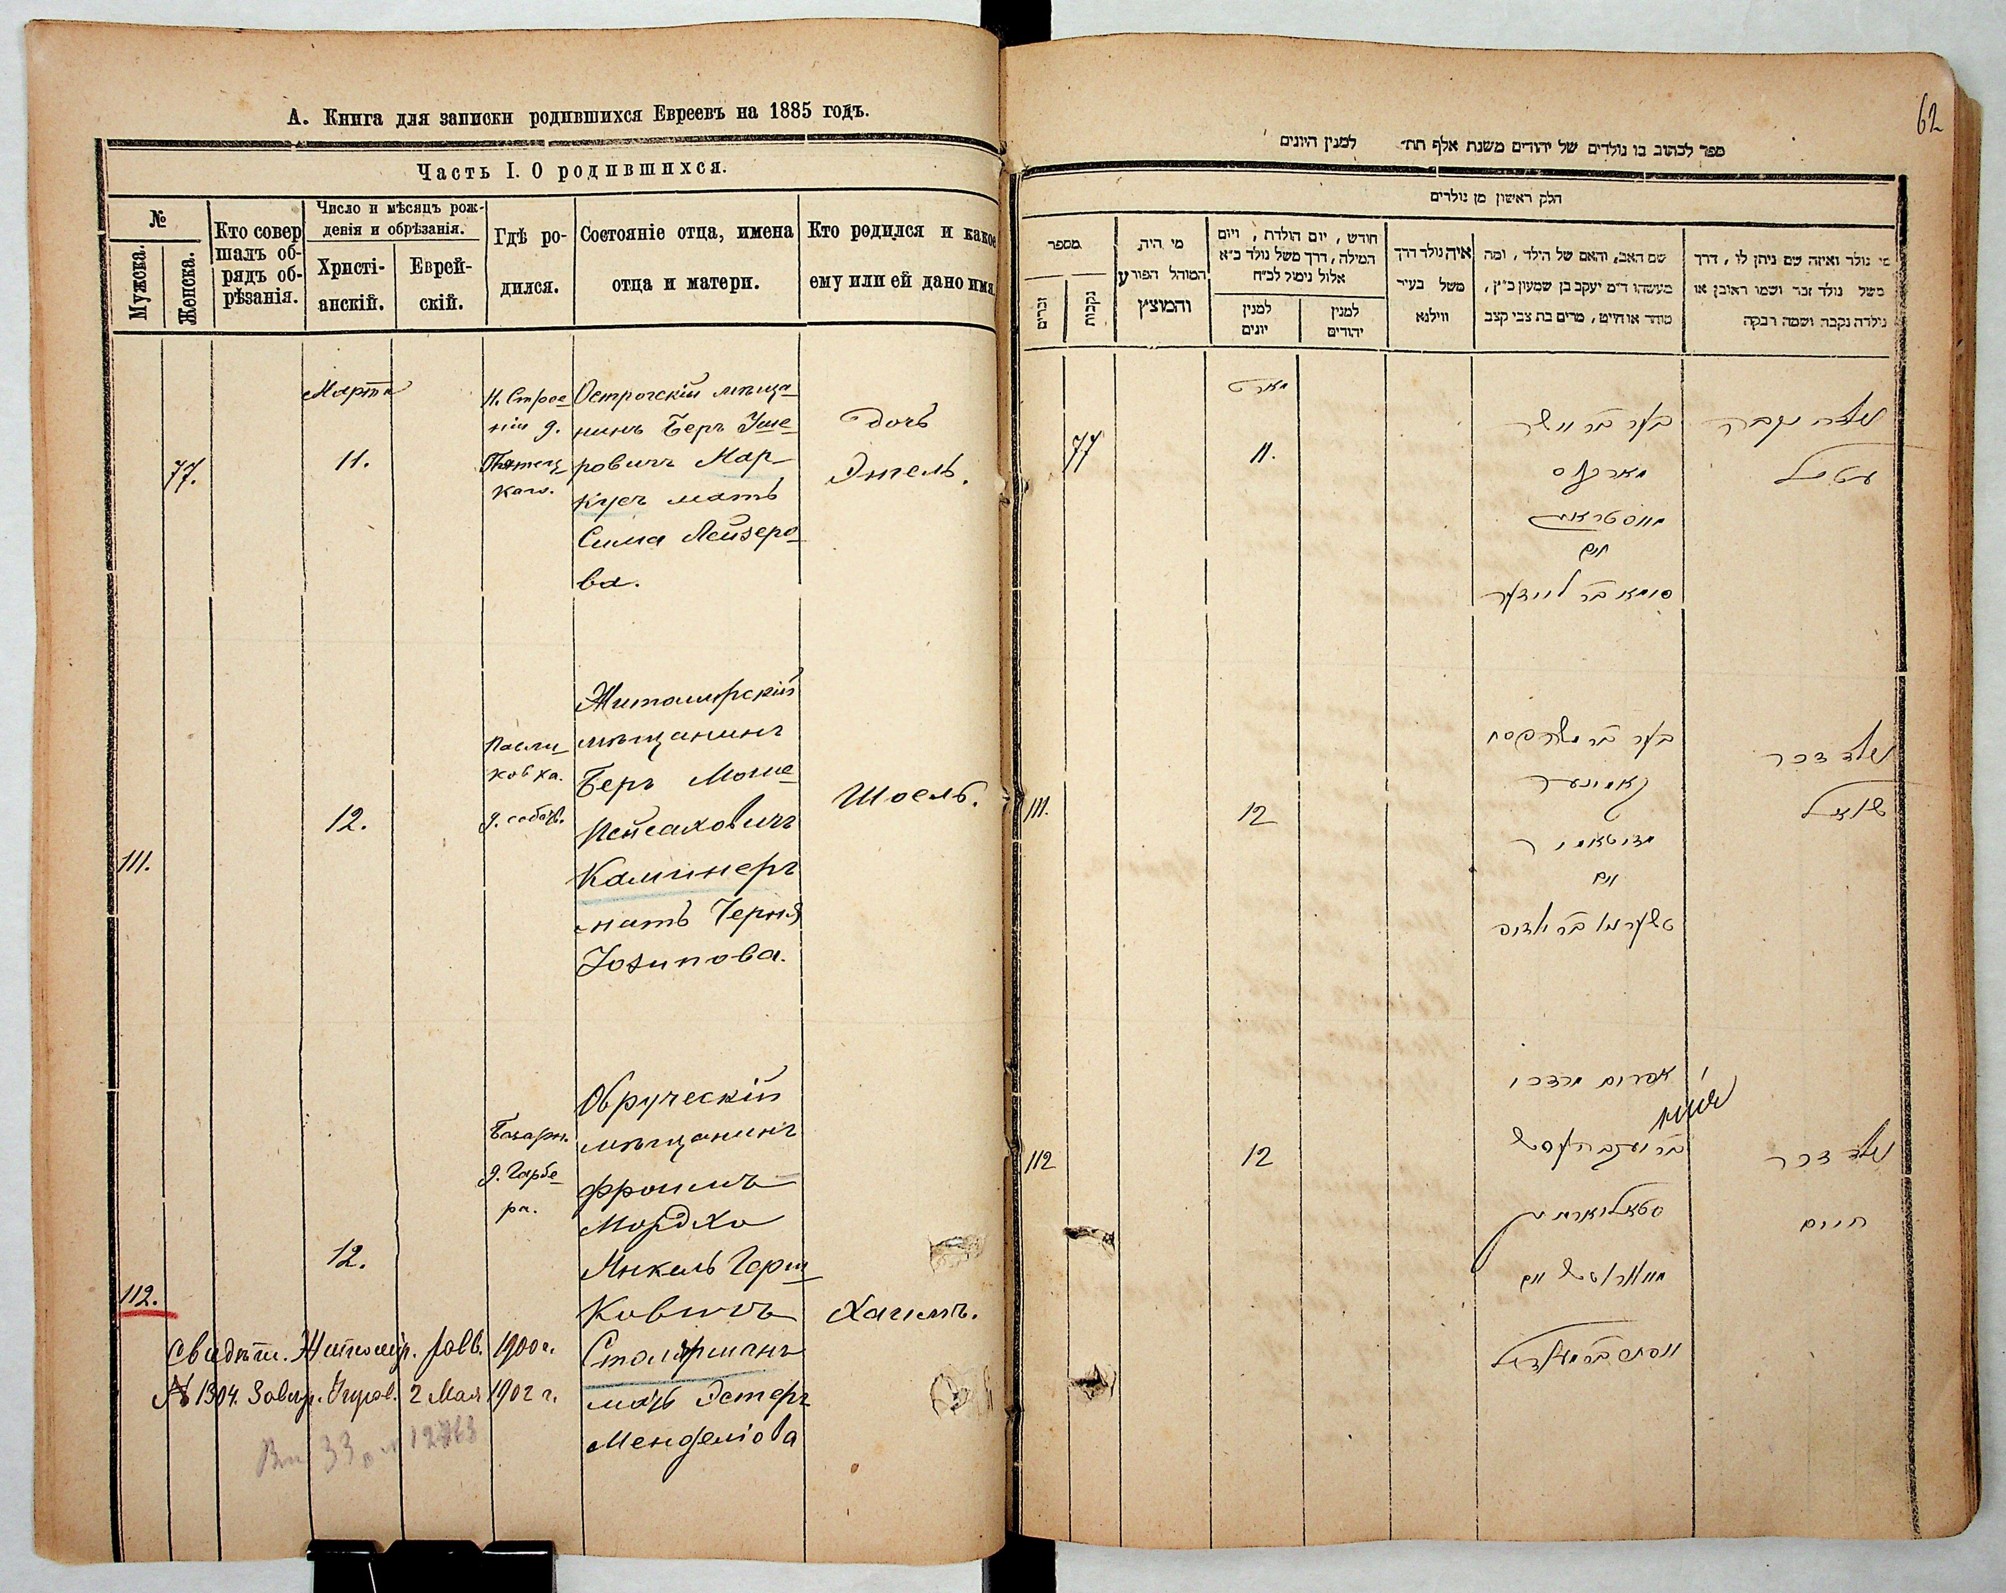 А. Книга для записки родившихся Евреевъ на 1885 годъ.
Часть I. О родившихся.
№
Мужска.
Женска.
Кто совер
шалъ об-
рядъ об-
рѣзанія.
Число и мѣсяцъ рож-
денія и обрѣзанія.
Христі-
анскій.
Еврей-
скій.
Гдѣ ро-
дился.
Состояніе отца, имена
отца и матери.
Кто родился и какое
ему или ей дано имя.
77.
Марта
11.
Н. Строе
ніи д.
Острогскій мѣща-
нинъ Беръ Уше-
ровичъ Мар-
кусъ мать
Сима Лейзеро-
ва.
Дочь
Этель.
111.
12.
Павли-
ковка.
д. собств.
Житомірскій
мѣщанинъ
Беръ Моше-
Пейсаховичъ
Каминеръ
мать Черня
Іозипова.
Шоель.
112.
12.
Базарн.
д. Гарбе-
ра.
Овручскій
мѣщанинъ
Фроимъ
Мордхо
Янкель Герш-
ковичъ
Столярманъ
мать Эстеръ
Менделіова
Хаимъ.
Свидѣт. Житомір. равв. 1900 г.
№ 1304. 2 Мая 1902 г.
62
ספר לכתוב בו נולדים של יהודים משנת אלף תת״ למנין היונים
חלק ראשון מן נולדים
מספר
זכרים
נקבות
מי היה
המוהל הפורע
והמוצץ
חודש, יום הולדת, ויום
המילה, דרך משל נולד כ״א
אלול נימול לכ״ח
למנין
יונים
למנין
יהודים
איה נולד דרך
משל בעיר
ווילנא
שם האב, והאם של הילד, ומה
מעשהו ד״מ יעקב בן שמעון כ״ץ,
סוחר או חייט, מרים בת צבי קצב
מי נולד ואיזה שם ניתן לו, דרך
משל נולד זכר ושמו ראובן או
נולדה נקבה ושמה רבקה
77
מארט
11.
בער בר אושר
מארקוס
אוסטראה
ואם
סימא בר לייזער
נולדה נקבה
עטיל
111.
12
בער בר משה פסח
קאמינער
זיטאמיר
ואם
טשערנא בר יוזיפ
נולד זכר
שואיל
112
12
אפרים מרדכי
סטאליארמאן
נולד זכר
חיים